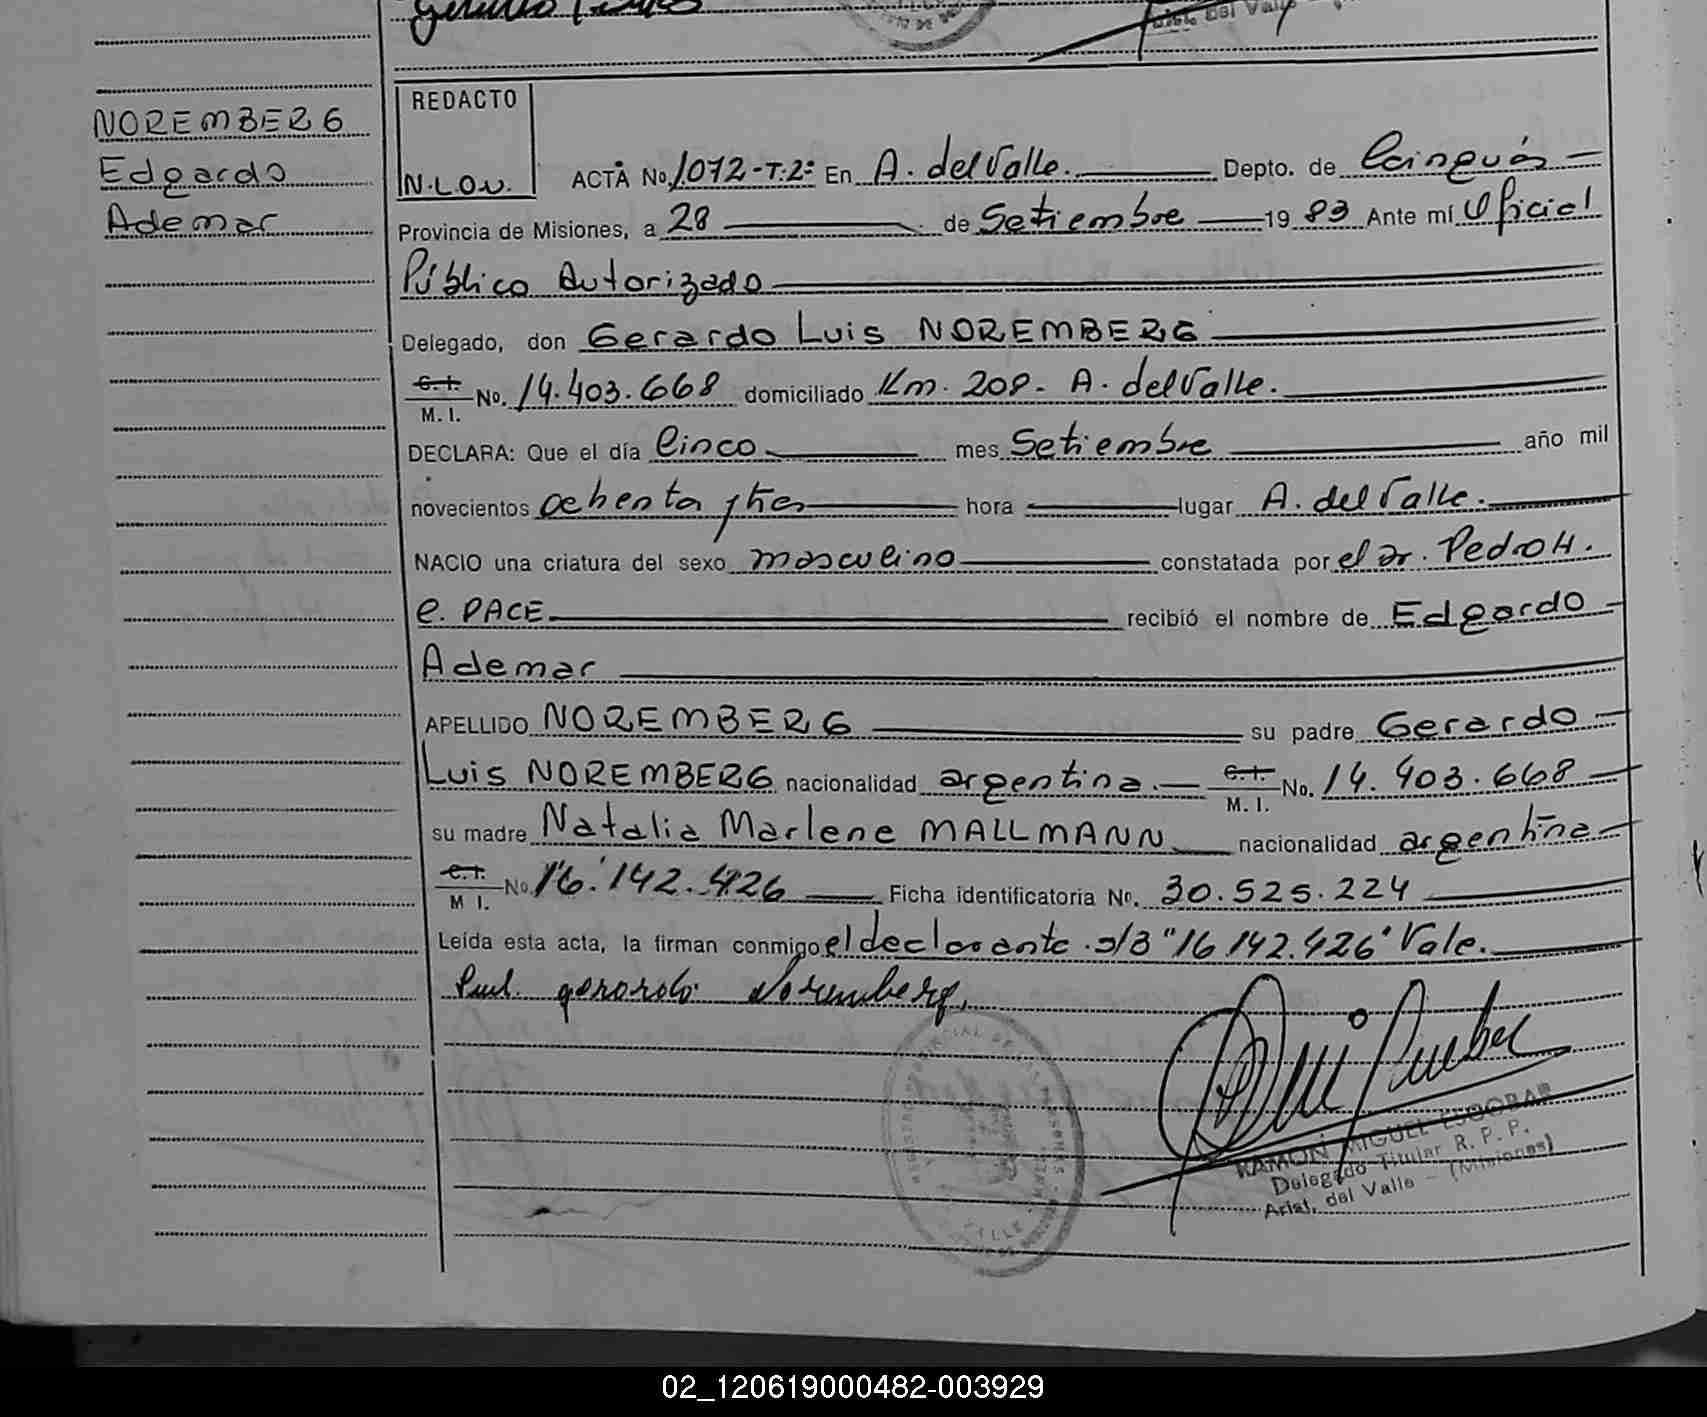 NOREMBERG
Edgardo
Ademar
REDACTO
N.L.O.V.
ACTA No. 1.072-T:2º En A. del Valle. Depto. de Cainguás
Provincia de Misiones, a 28 de Setiembre 1983 Ante mí Oficial
Público Autorizado
Delegado, don Gerardo Luis NOREMBERG
C.I. M.I. No. 14.403.668 domiciliado Km. 208- A. del Valle.
DECLARA: Que el día Cinco mes Setiembre año mil
novecientos ochenta y tres hora lugar A. del Valle.
NACIO una criatura del sexo masculino constatada por el Dr. Pedro H.
C. PACE recibió el nombre de Edgardo
Ademar
APELLIDO NOREMBERG su padre Gerardo
Luis NOREMBERG nacionalidad argentina. C.I. M.I. No. 14.403.668
su madre Natalia Marlene MALLMANN nacionalidad argentina
C.I. M I. No. "16.142.426 Ficha identificatoria No. 30.525.224
Leída esta acta, la firman conmigo el declarante. s/B "16.142.426" Vale.
Noremberg
RAMON MIGUEL ESCOBAR
Delegado Titular R. P. P.
Arist. del Valle - (Misiones)
02_120619000482-003929